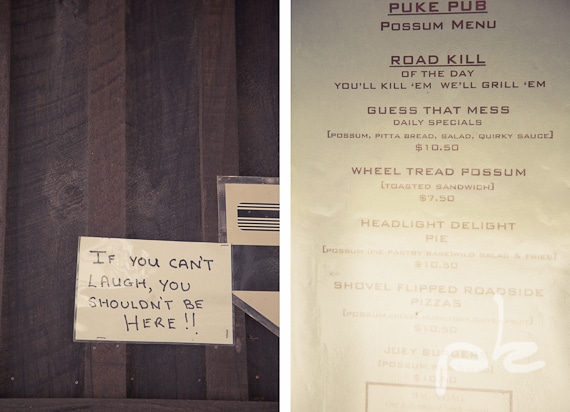 IF YOU CAN'T
LAUGH, YOU
SHOULDN'T BE
HERE!!
PUKE PUB
POSSUM MENU
ROAD KILL
OF THE DAY
YOU'LL KILL 'EM WE'LL GRILL 'EM
GUESS THAT MESS
DAILY SPECIALS
[POSSUM, PITTA BREAD, SALAD, QUIRKY SAUCE]
$10.50
WHEEL TREAD POSSUM
[TOASTED SANDWICH]
$7.50
HEADLIGHT DELIGHT
PIE
[POSSUM PIE PASTRY BASE WILD SALAD & FRIES]
$10.50
SHOVEL FLIPPED ROADSIDE
PIZZAS
[POSSUM,
$10.50
JOEY BURGER
[POSSUM,
$10.50
pk